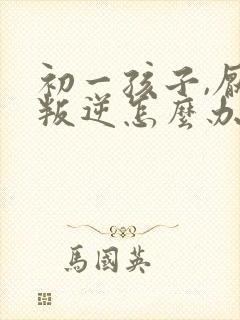 初一孩子,厭
叛逆怎麼办
馬國英